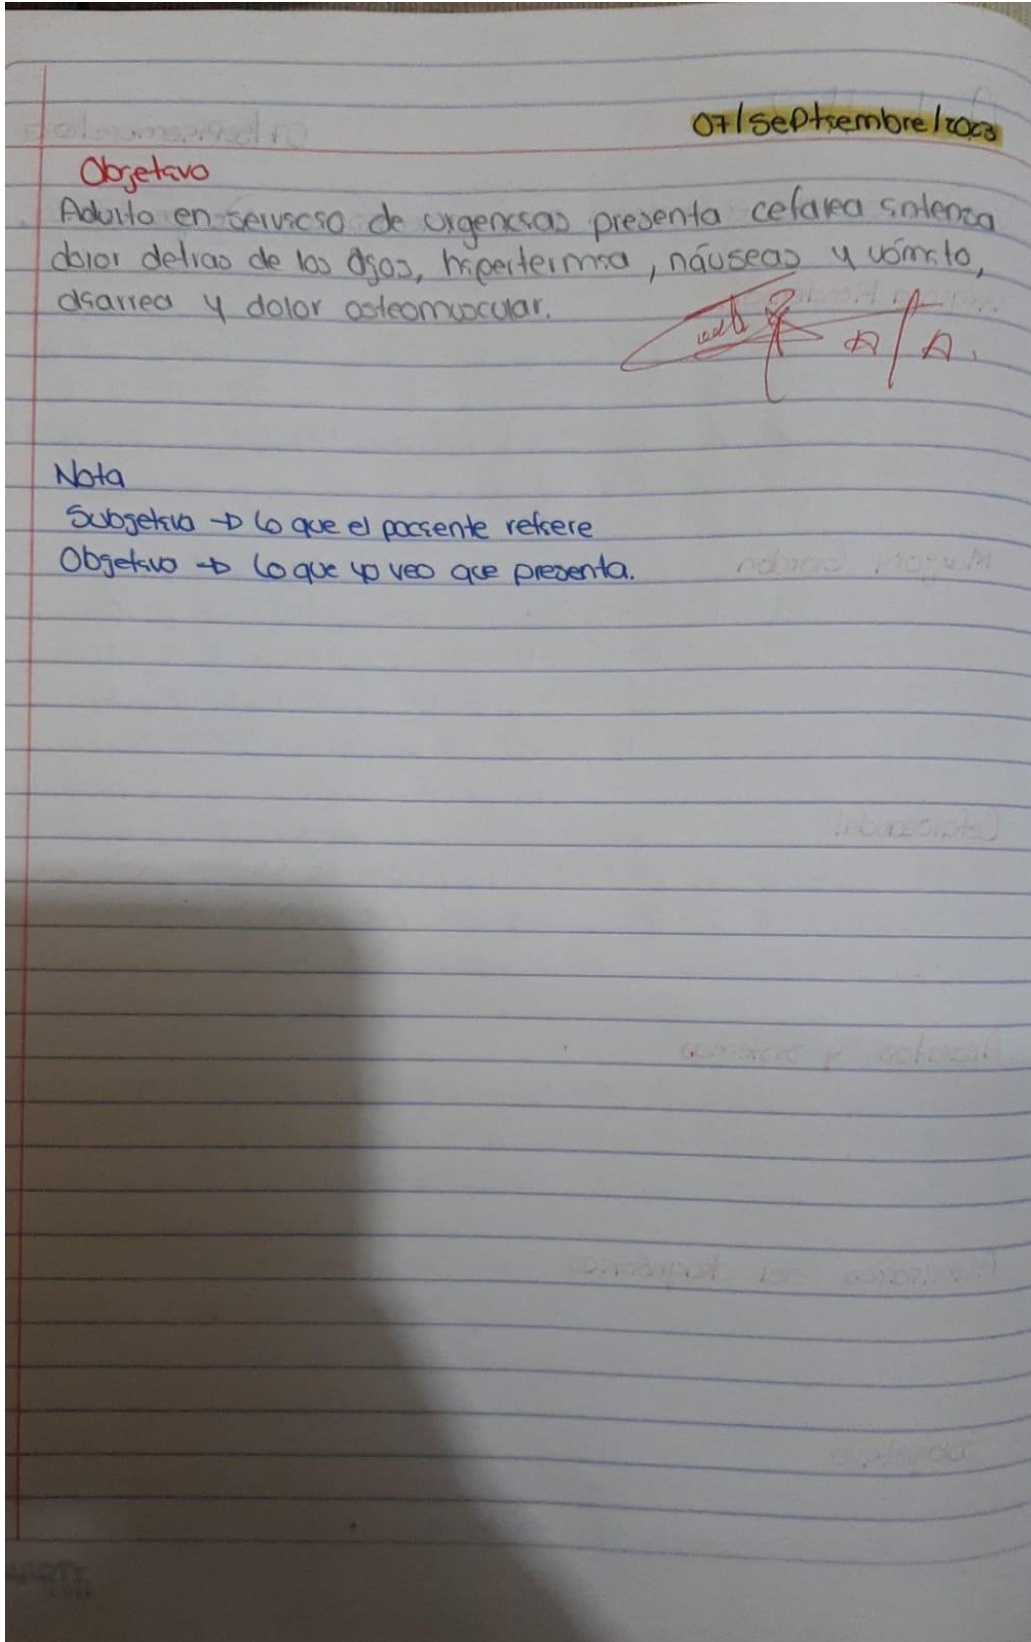 07/Septiembre/2023
Objetivo
Adulto en servicio de urgencias presenta cefarea intensa
dolor detras de los ojos, hipertermia, náuseas y vómito,
diarrea y dolor osteomuscular.
A/A.
Nota
Subjetivo → Lo que el paciente refiere
Objetivo → Lo que yo veo que presenta.